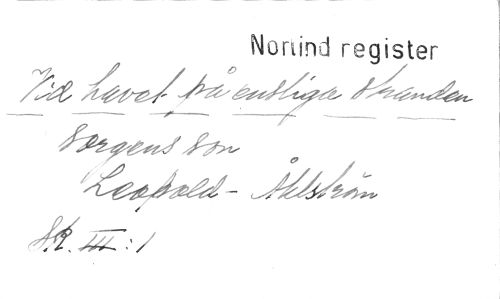 Norlind register
Vid havet på ensliga stranden
Sorgens son
Leopold - Åhlström
S.R. III:1